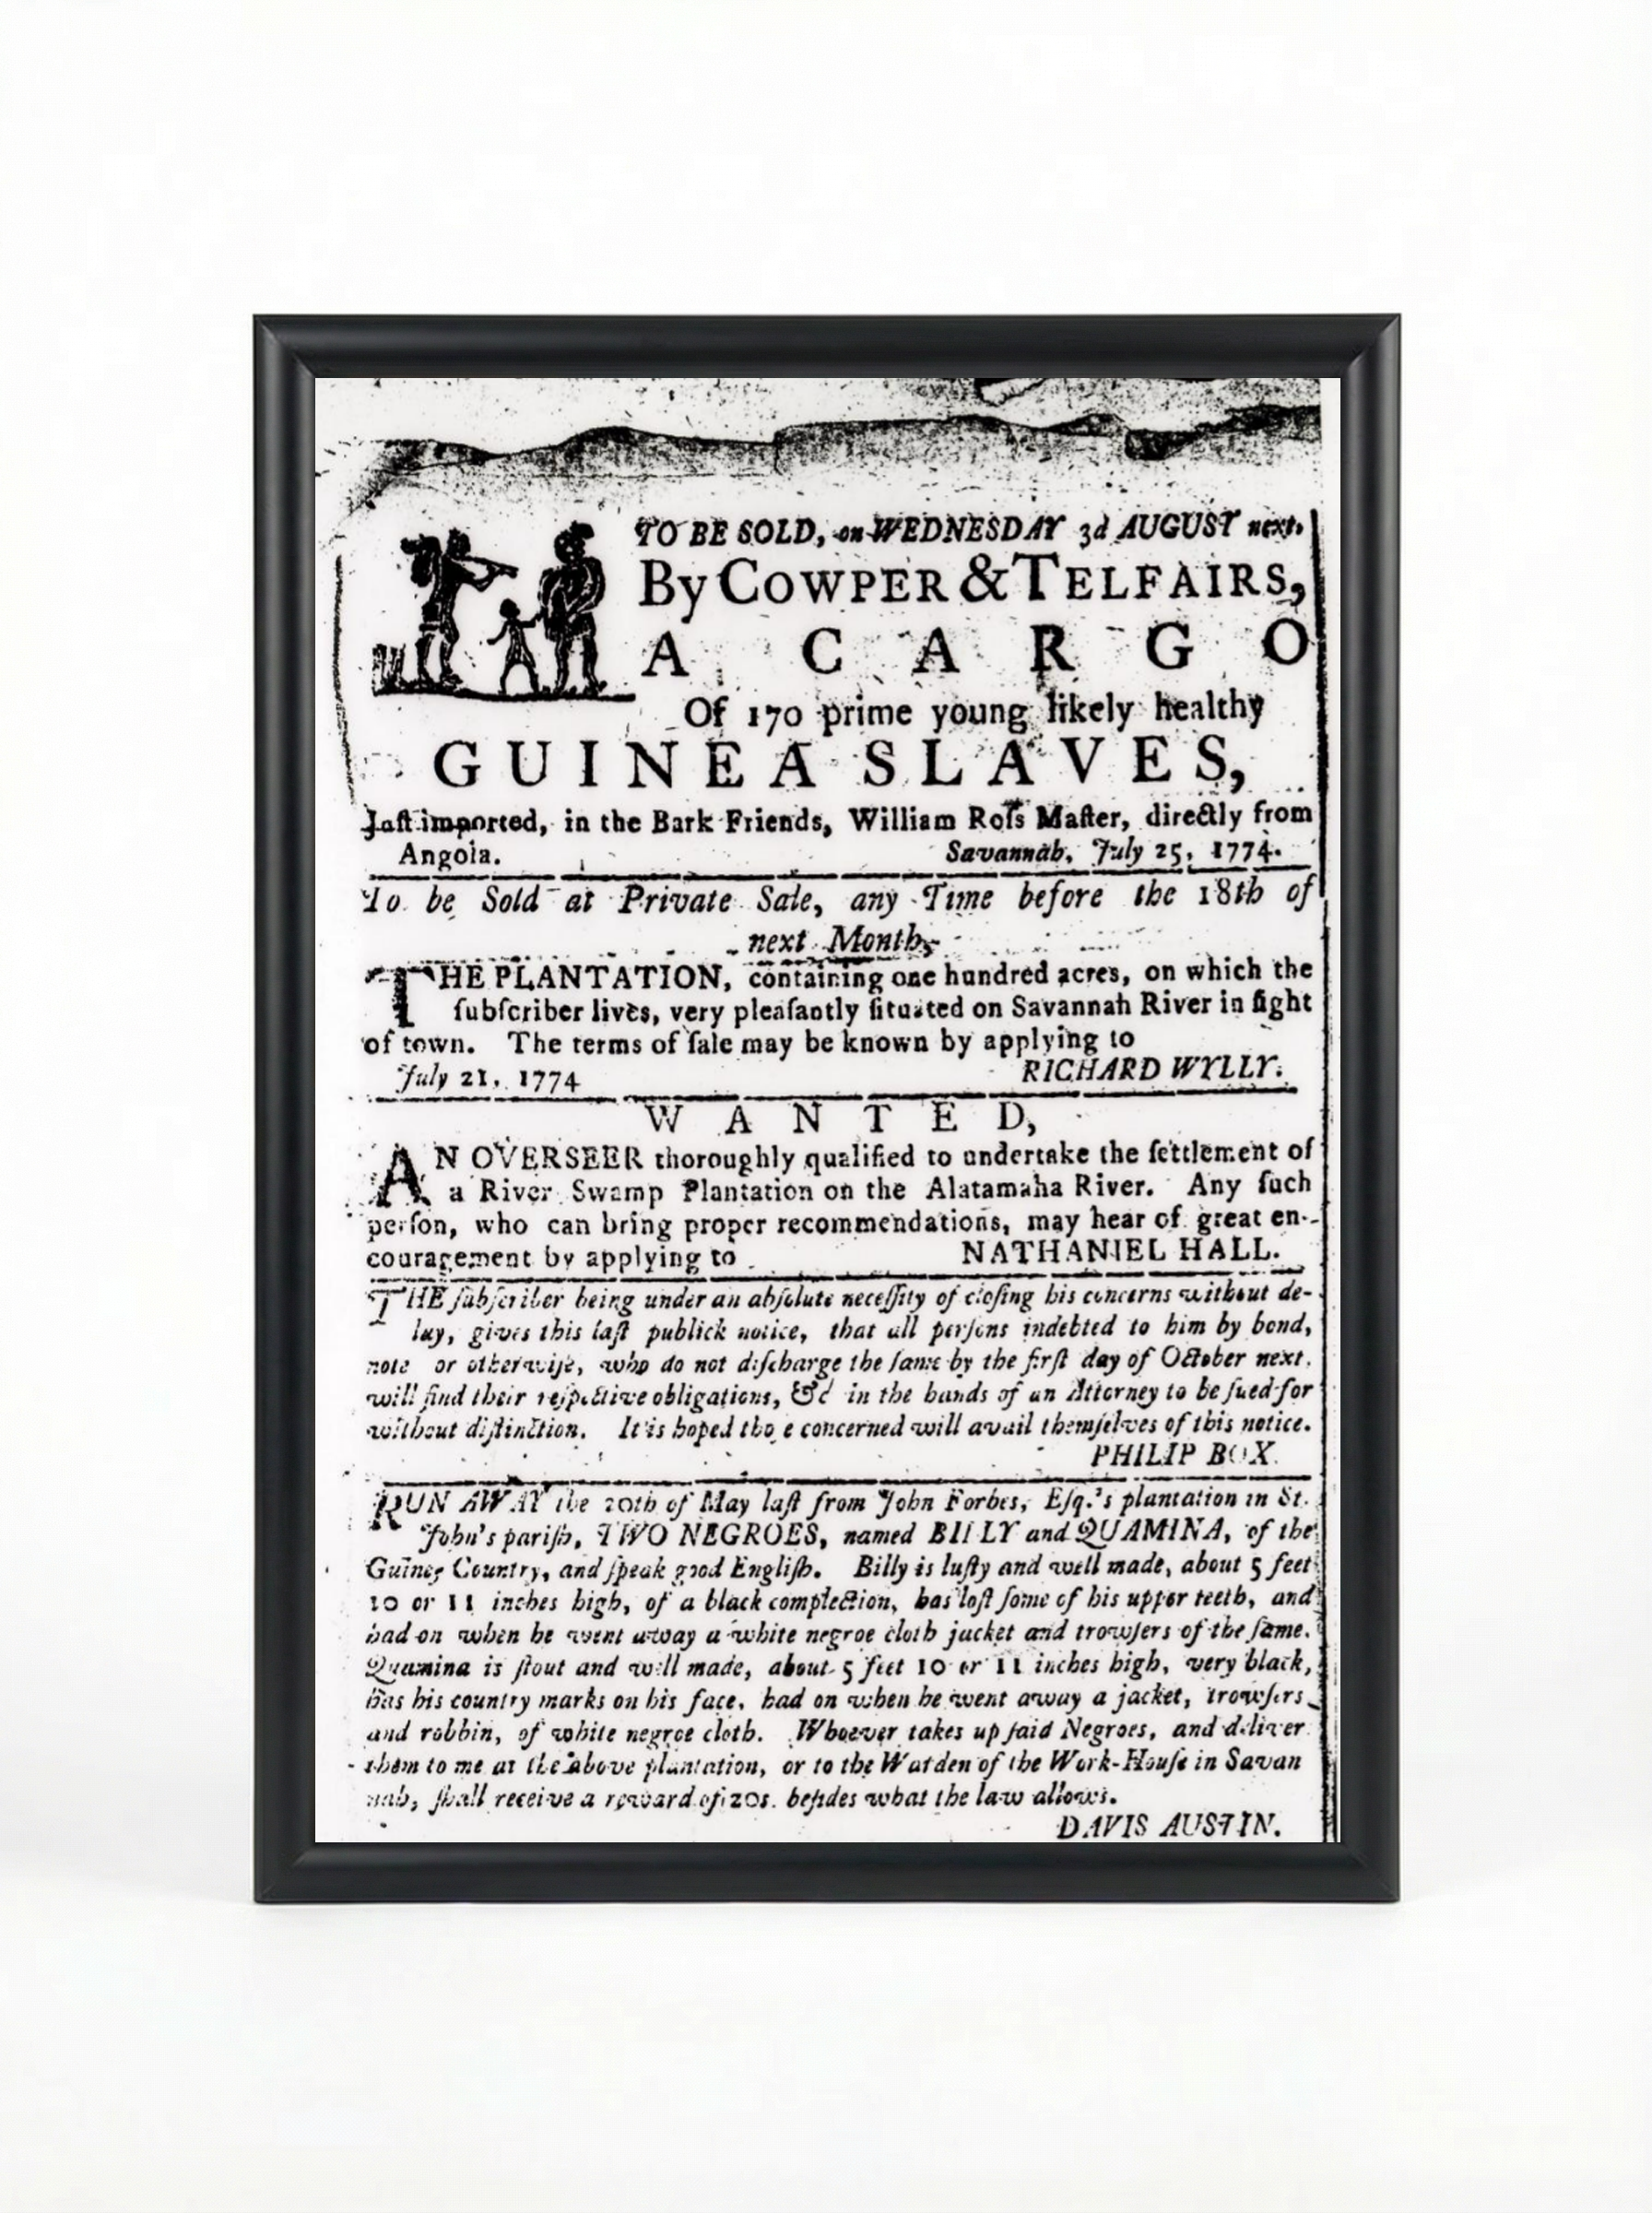 TO BE SOLD, on WEDNESDAY 3d AUGUST next,
By COWPER & TELFAIRS,
A CARGO
Of 170 prime young likely healthy
GUINEA SLAVES,
Juſt imported, in the Bark Friends, William Roſs Maſter, directly from
Angola. Savannah, July 25, 1774.
To be Sold at Private Sale, any Time before the 18th of
next Month,
THE PLANTATION, containing one hundred acres, on which the
ſubſcriber lives, very pleaſantly ſituated on Savannah River in ſight
of town. The terms of ſale may be known by applying to
July 21, 1774 RICHARD WYLLY.
WANTED,
AN OVERSEER thoroughly qualified to undertake the ſettlement of
a River Swamp Plantation on the Alatamaha River. Any ſuch
perſon, who can bring proper recommendations, may hear of great en-
couragement by applying to NATHANIEL HALL.
THE ſubſcriber being under an abſolute neceſſity of cloſing his concerns without de-
lay, gives this laſt publick notice, that all perſons indebted to him by bond,
note or otherwiſe, who do not diſcharge the ſame by the firſt day of October next,
will find their reſpective obligations, &c in the hands of an Attorney to be ſued for
without diſtinction. It is hoped thoſe concerned will avail themſelves of this notice.
PHILIP BOX.
RUN AWAY the 20th of May laſt from John Forbes, Eſq.'s plantation in St.
John's pariſh, TWO NEGROES, named BILLY and QUAMINA, of the
Guinea Country, and ſpeak good Engliſh. Billy is luſty and well made, about 5 feet
10 or 11 inches high, of a black complection, has loſt ſome of his upper teeth, and
had on when he went away a white negroe cloth jacket and trowſers of the ſame.
Quamina is ſtout and well made, about 5 feet 10 or 11 inches high, very black,
has his country marks on his face, had on when he went away a jacket, trowſers
and robbin, of white negroe cloth. Whoever takes up ſaid Negroes, and deliver
them to me at the above plantation, or to the Warden of the Work-Houſe in Savan
nah, ſhall receive a reward of 20s. beſides what the law allows.
DAVIS AUSTIN.